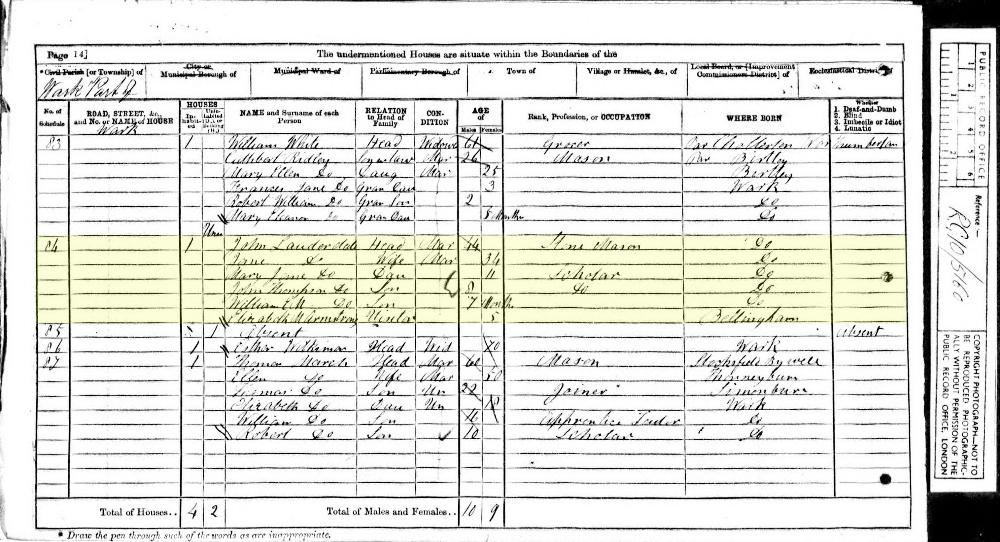 Page 14]
The undermentioned Houses are situate within the Boundaries of the
Civil Parish [or Township] of
City or Municipal Borough of
Municipal Ward of
Parliamentary Borough of
Town of
Village or Hamlet, &c., of
Local Board, or [Improvement Commissioners District] of
Ecclesiastical District of
Wark
No. of Schedule
ROAD, STREET, &c., and No. or NAME of HOUSE
HOUSES
Inhabited
Uninhabited (U.), or Building (B.)
NAME and Surname of each Person
RELATION to Head of Family
CONDITION
AGE of
Males
Females
Rank, Profession, or OCCUPATION
WHERE BORN
Whether
1. Deaf-and-Dumb
2. Blind
3. Imbecile or Idiot
4. Lunatic
Wark
83 1 William White Head Widower 61 Grocer
Cuthbert Ridley Mar 26 Mason Birtley
Mary Ellen Do Daug Mar 25 Birtley
Frances Jane Do Gran Dau 3 Wark
Robert William Do Gran Son 2 Do
Mary Eleanor Do Gran Dau 8 Months Do
84 1 John Lauderdale Head Mar 44 Stone Mason Do
Jane Do Wife Mar 34 Do
Mary Jane Do Dau 11 Scholar Do
John Thompson Do Son 8 Do Do
William Do Son 7 Months Do
Elizabeth Armstrong Visitor 5 Bellingham
85 1 Absent Absent
86 1 Esther Williamson Head Wid 70 Wark
87 1 Thomas March Head Mar 60 Mason Bywell
Ellen Do Wife Mar 50 Thorneyburn
Thomas Do Son Un 22 Joiner Simonburn
Elizabeth Do Dau Un 18 Wark
William Do Son 16 Apprentice Do
Robert Do Son 10 Scholar Do
Total of Houses.. 4 2
Total of Males and Females.. 10 9
* Draw the pen through such of the words as are inappropriate.
PUBLIC RECORD OFFICE
1 2 3 4 5 6
Reference:-
RG10/5160
COPYRIGHT PHOTOGRAPH-NOT TO BE REPRODUCED PHOTOGRAPHICALLY WITHOUT PERMISSION OF THE PUBLIC RECORD OFFICE, LONDON